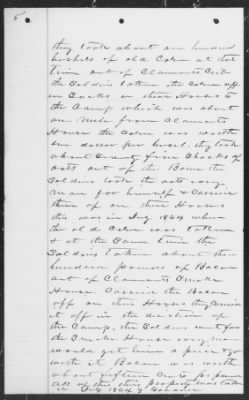 they took about one hundred
bushels of old Corn at that
time out of Claimants Crib
the Soldiers taken the Corn off
in Sacks on their Horses to
the Camp which was about
one Mile from Claimants
House the Corn was worth
one dollar per bushel. they took
about Seventy five Shocks of
oats out of the Barn the
Soldiers took the oats every
man for himself & Carried
them off on their Horses
this was in Aug 1864 when
the old Corn was taken
& at the Same time the
Soldiers taken about three
hundred pounds of Bacon
out of Claimants Smoke
House Carried the Bacon
off on their Horses they Carried
it off in the direction of
the Camp, the Soldiers went for
the Smoke House every man
would get him a piece & go
with it Bacon was worth
about fifteen Cents per pound
All of this property was taken
in Aug 1864 &